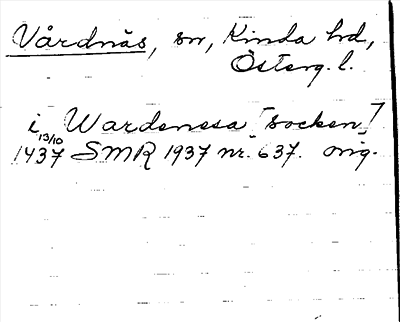 Vårdnäs, sn, Kinda hd,
Österg. l.
i Wardenesa [socken]
13/10
1437 SMR 1937 nr. 637. orig.